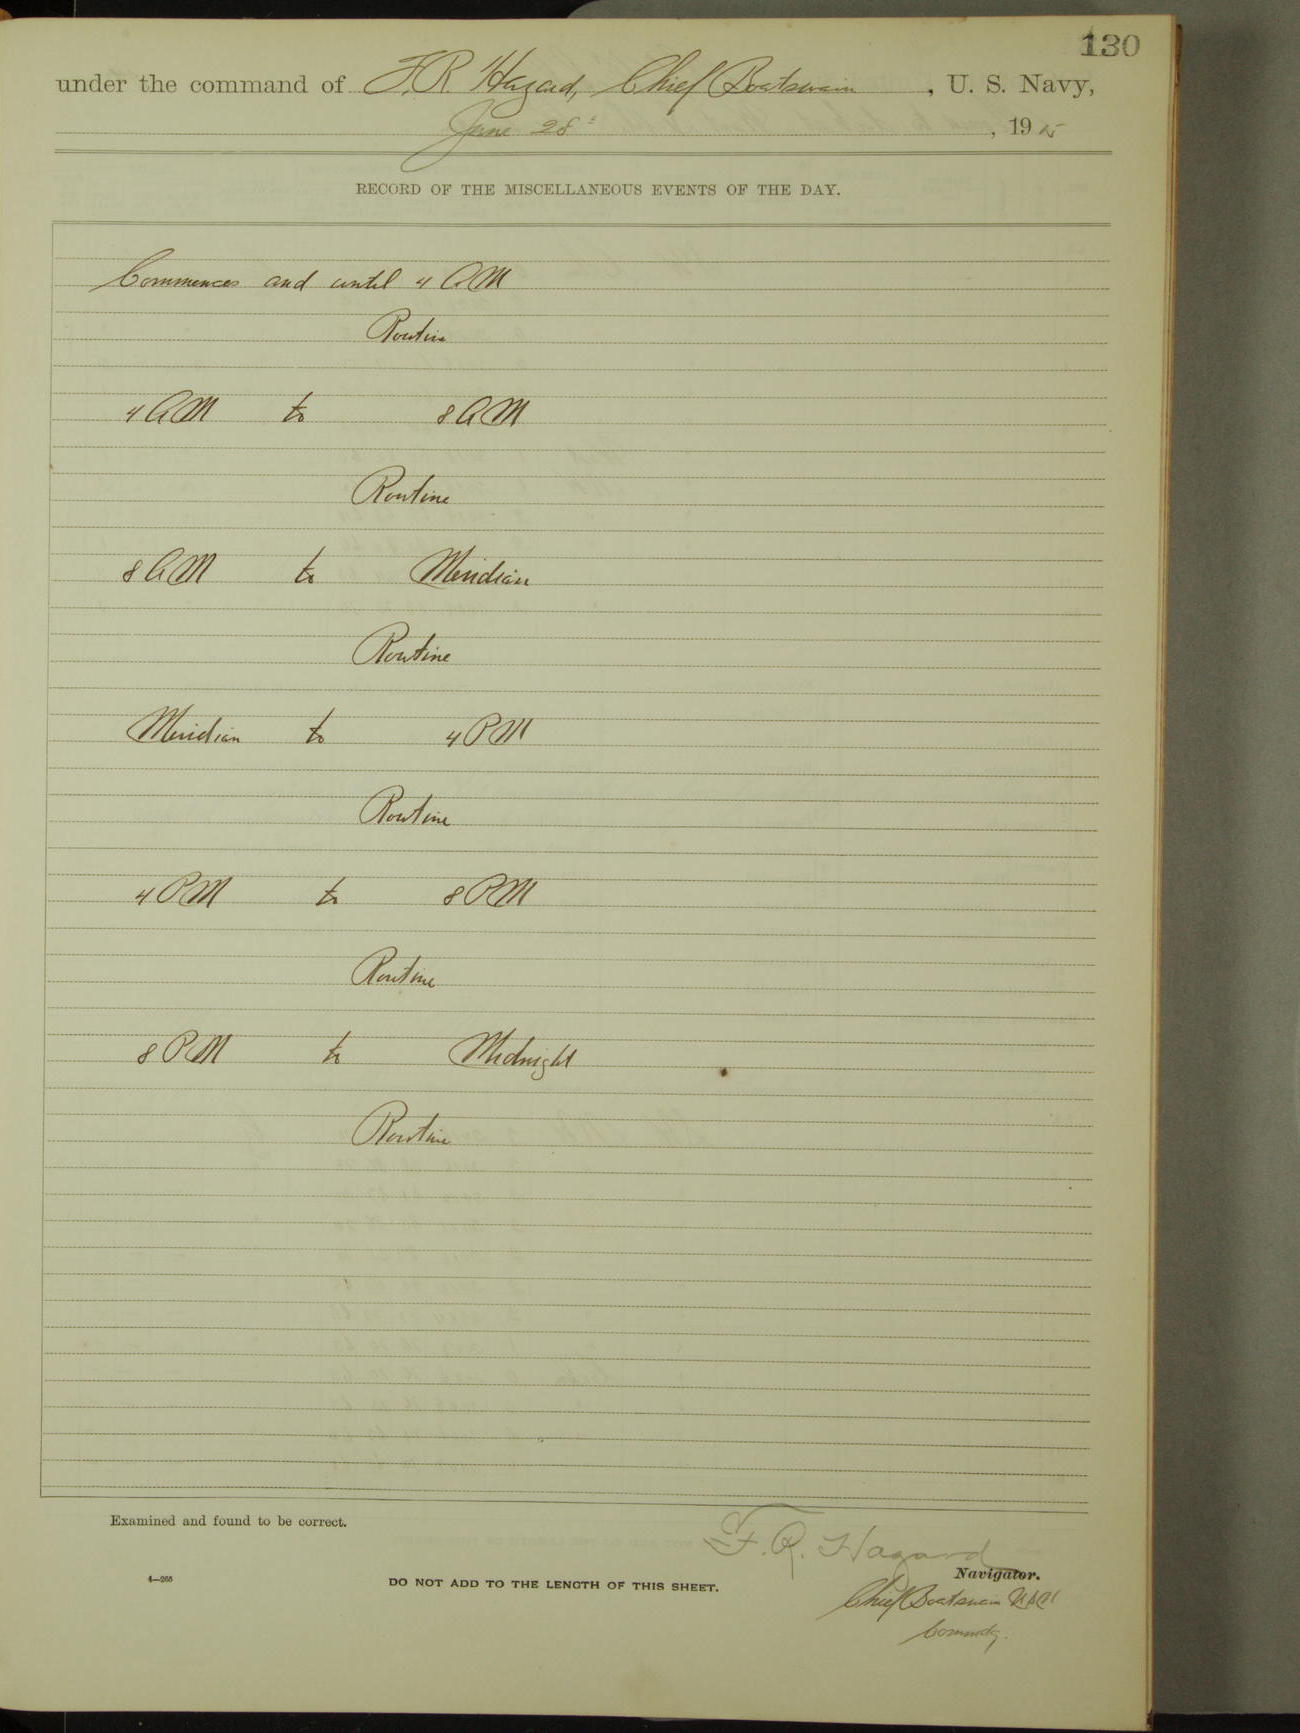 130
under the command of F. R. Hazard, Chief Boatswain, U. S. Navy,
June 28", 1915
RECORD OF THE MISCELLANEOUS EVENTS OF THE DAY.
Commences and until 4 AM
Routine
4 AM to 8 AM
Routine
8 AM to Meridian
Routine
Meridian to 4 PM
Routine
4 PM to 8 PM
Routine
8 PM to Midnight
Routine
Examined and found to be correct.
F. R. Hazard
Navigator.
4—265
DO NOT ADD TO THE LENGTH OF THIS SHEET.
Chief Boatswain USN
Commdg.